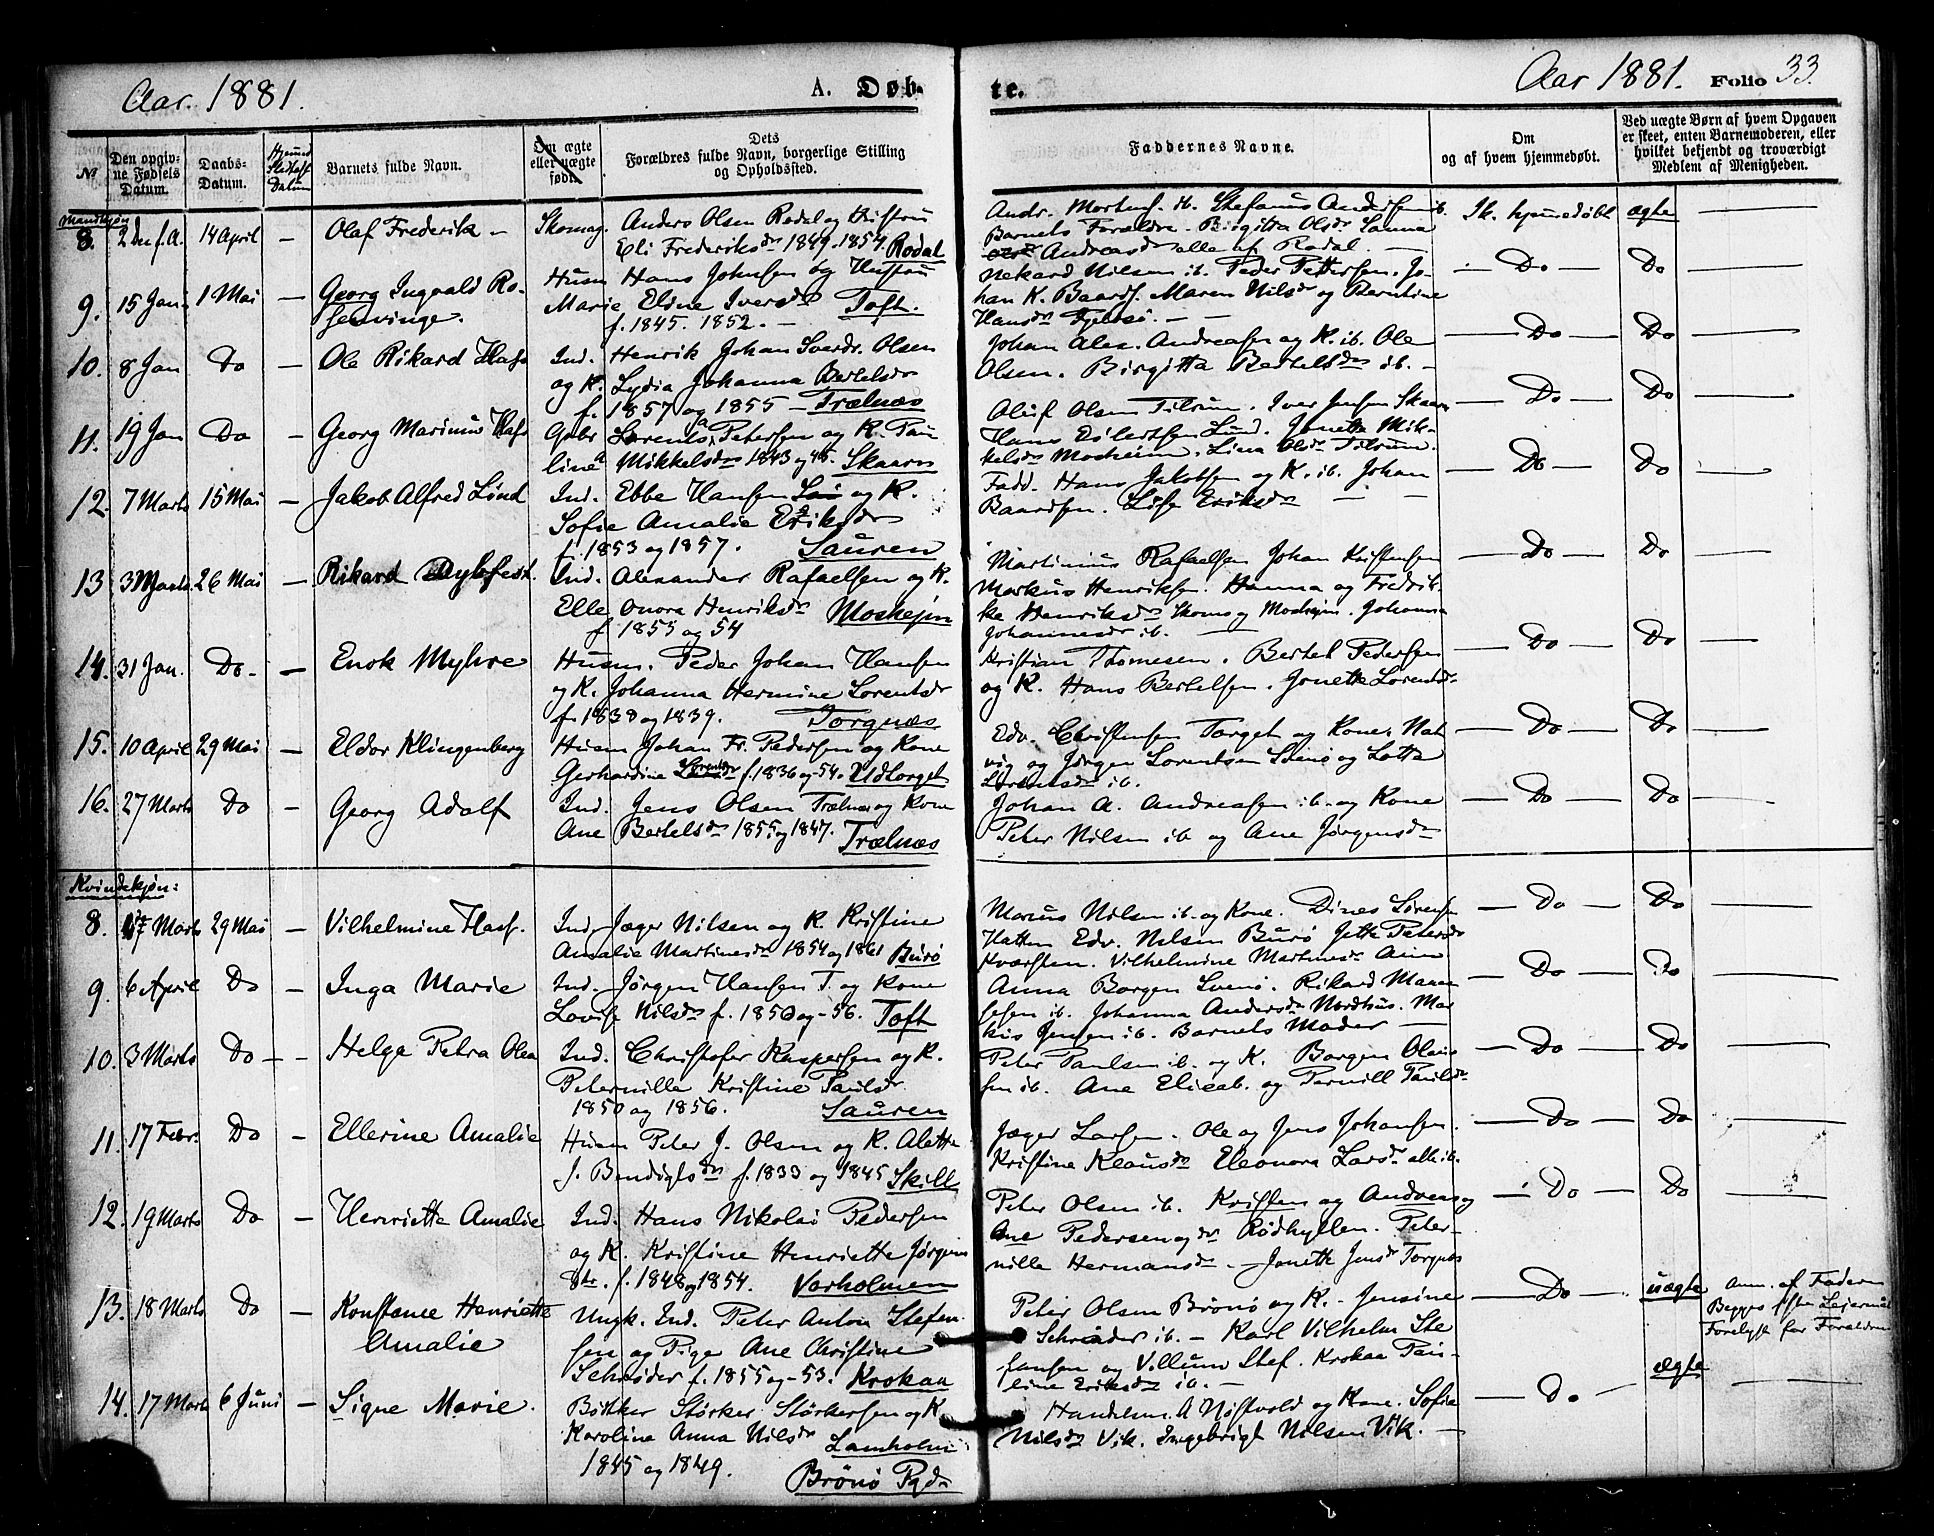 Aar. 1881.
A. Døb-
te.
Aar 1881. Folio 33.
No
Den opgiv-
ne Fødsels
Datum.
Daabs-
Datum.
Barnets fulde Navn.
Om ægte
eller uægte
født.
Dets
Forældres fulde Navn, borgerlige Stilling
og Opholdssted.
Faddernes Navne.
Om
og af hvem hjemmedøbt.
Ved uægte Børn af hvem Opgaven
er skeet, enten Barnemoderen, eller
hvilket bekjendt og troværdigt
Medlem af Menigheden.
Mandkjøn
8. 14 April – Olaf Frederik – Skomag. Anders Olsen Rodal og Hustru
Eli Frederiksdr 1849. 1854 Rodal
Andr. Mortens. ib. Stefanus Andersen ib.
Barnets Forældre. Birgitta Olsdr Sanna
Andreasdr alle af Rodal. —
Ik. hjemmedøbt ægte —
9. 15 Jan. 1 Mai – Georg Ingvald Ro-
senvinge.
Husm Hans Johnsen og Hustru
Marie Eline Iversdr Toft.
f. 1845. 1852. –
Nekard Nilsen ib. Peder Pettersen. Jo-
han K. Baards. Maren Nilsdr og Berntine
Hansdr
— Do — Do —
10. 8 Jan Do – Ole Rikard Hass
Ind. Henrik Johan Sverdr. Olsen
og K. Lydia Johanna Bertelsdr
f. 1857 og 1855 – Trælnæs
Johan Alex. Andreasen og K. ib. Ole
Olsen. Birgitta Bertelsdr ib. –
— Do — Do —
11. 19 Jan Do – Georg Marinus Hass
Gbr Lorents Petersen og K. Pau
line Mikkelsdr 1843 og 45. Skaaren
Oluf Olsen Tilrum. Iver Jensen Skaaren
Hans Eilertsen Lund. Jonetta Mik-
kelsdr Mosheim. Lina Olsdr Tilrum.
— Do — Do —
12. 7 Marts 15 Mai – Jakob Alfred Lind
Ind. Ebbe Hansen og K.
Sofie Amalie Eriksdr
f. 1853 og 1857. Sauren
Fadd. Hans Jakobsen og K. ib. Johan
Baardsen. Lise Eriksdr —
— Do — Do —
13 3 Marts. 26 Mai – Rikard Dybfest.
Ind. Alexander Rafaelsen og K.
Elle onora Henriksdr Moshejm
f 1855 og 54
Martinius Rafaelsen Johan Kristensen
Markus Henriksen. Hanna og Fredrik-
ke Henriksdr Skoms og Moshejm. Johanna
Johannesdr ib. —
— Do — Do —
14. 31 Jan. Do. – Enok Myhre
Husm. Peder Johan Hansen
og K. Johanna Hermine Lorentsdr
f. 1838 og 1839. Torgnæs
Kristian Thomesen. Bertel Pedersen
og K. Hans Bertelsen. Jonette Lorentsdr
— Do — Do —
15. 10 April 29 Mai – Eldor Klingenberg
Husm Johan Fr. Pedersen og Kone
Gerhardine Lorentsdr f. 1836 og -54. Udtorget
Edv. Christensen Torget og Kone. Nat
vig og Jørgen Lorentsen og Lotta
Lorentsdr ib.
— Do — Do —
16. 27 Marts Do – Georg Adolf
Ind. Jens Olsen Trælnæs og Kone
Ane Bertelsdr 1855 og 1847. Trælnæs
Johan A. Andreassen ib. og Kone
Peter Nilsen ib og Ane Jørgensdr
— Do — Do —
Kvindekjøn:
8. 17 Marts 29 Mai – Vilhelmine Hass.
Ind. Jæger Nilsen og K. Kristine
Amalie Martinesdr 1854 og 1861 Burø
Marius Nilsen ib. og Kone. Dines Sørensen
Hatten Edv. Nilsen Burø Jette Petersdr
Vilhelmine Martinesdr
— Do — Do —
9. 6 April Do – Inga Marie
Ind. Jørgen Hansen T. og Kone
Lovise Nilsdr f. 1850 og -56. Toft
Anna Borgen Svinø. Rikard
ib. Johanna Andersdr Nordhus. Mar
kus Jensen ib. Barnets Moder —
— Do — Do —
10. 3 Marts Do – – Helga Petra Olea
Ind. Christofer Kaspersen og K.
Peternille Kristine Paulsdr.
1850 og 1856. Sauren
Peter Paulsen ib. og K. Borgen Olaus
sen ib. Ane Elisab. og Pernill Paulsdr
— Do — Do —
11. 17 Febr. Do – Ellerine Amalie
Husm Peter J. Olsen og K. Aletta
J. Bendigtsdr f. 1833 og 1845 Skill
Jæger Larsen. Ole og Jens Johansen.
Kristine Klausdr Eleonora Larsdr alle ib.
— Do — Do —
12. 19 Marts Do – Henriette Amalie
Ind. Hans Nikolai Pedersen
og K. Kristine Henriette Jørgens
dtr. f. 1848 og 1854. Varholmen
Peter Olsen ib. Kristen og Andreas og
Ane Pedersen og dr Rødhyllen. Peter-
nille Hermansdr. – Jonetta Jensdr Torgnes
— Do — Do —
13. 18 Marts Do – Konstance Henriette
Amalie
Ungk. Ind. Peter Anton Stefen
sen og Pige Ane Christine
Schrøder f. 1855 og -53. Krokaa
Peter Olsen Brønø og K. Jensine
Schrøder ib. – Karl Vilhelm Ste
fansen og Villum Stef. Krokaa Pau-
line Eriksdr ib. –
— Do — uægte
Anm. af Faderen
Begges
for Forældrene
14. 17 Marts 6 Juni – Signe Marie.
Bødker Størker Størkersen og K
Karoline Anna Nilsdr Lamholm
1845 og 1849. Brønø Pgd
Handelsm. A Nøstvold og Kone. Sofie
Nilsdr Vik. Ingebrigt Nilsen Vik. –
— Do – ægte